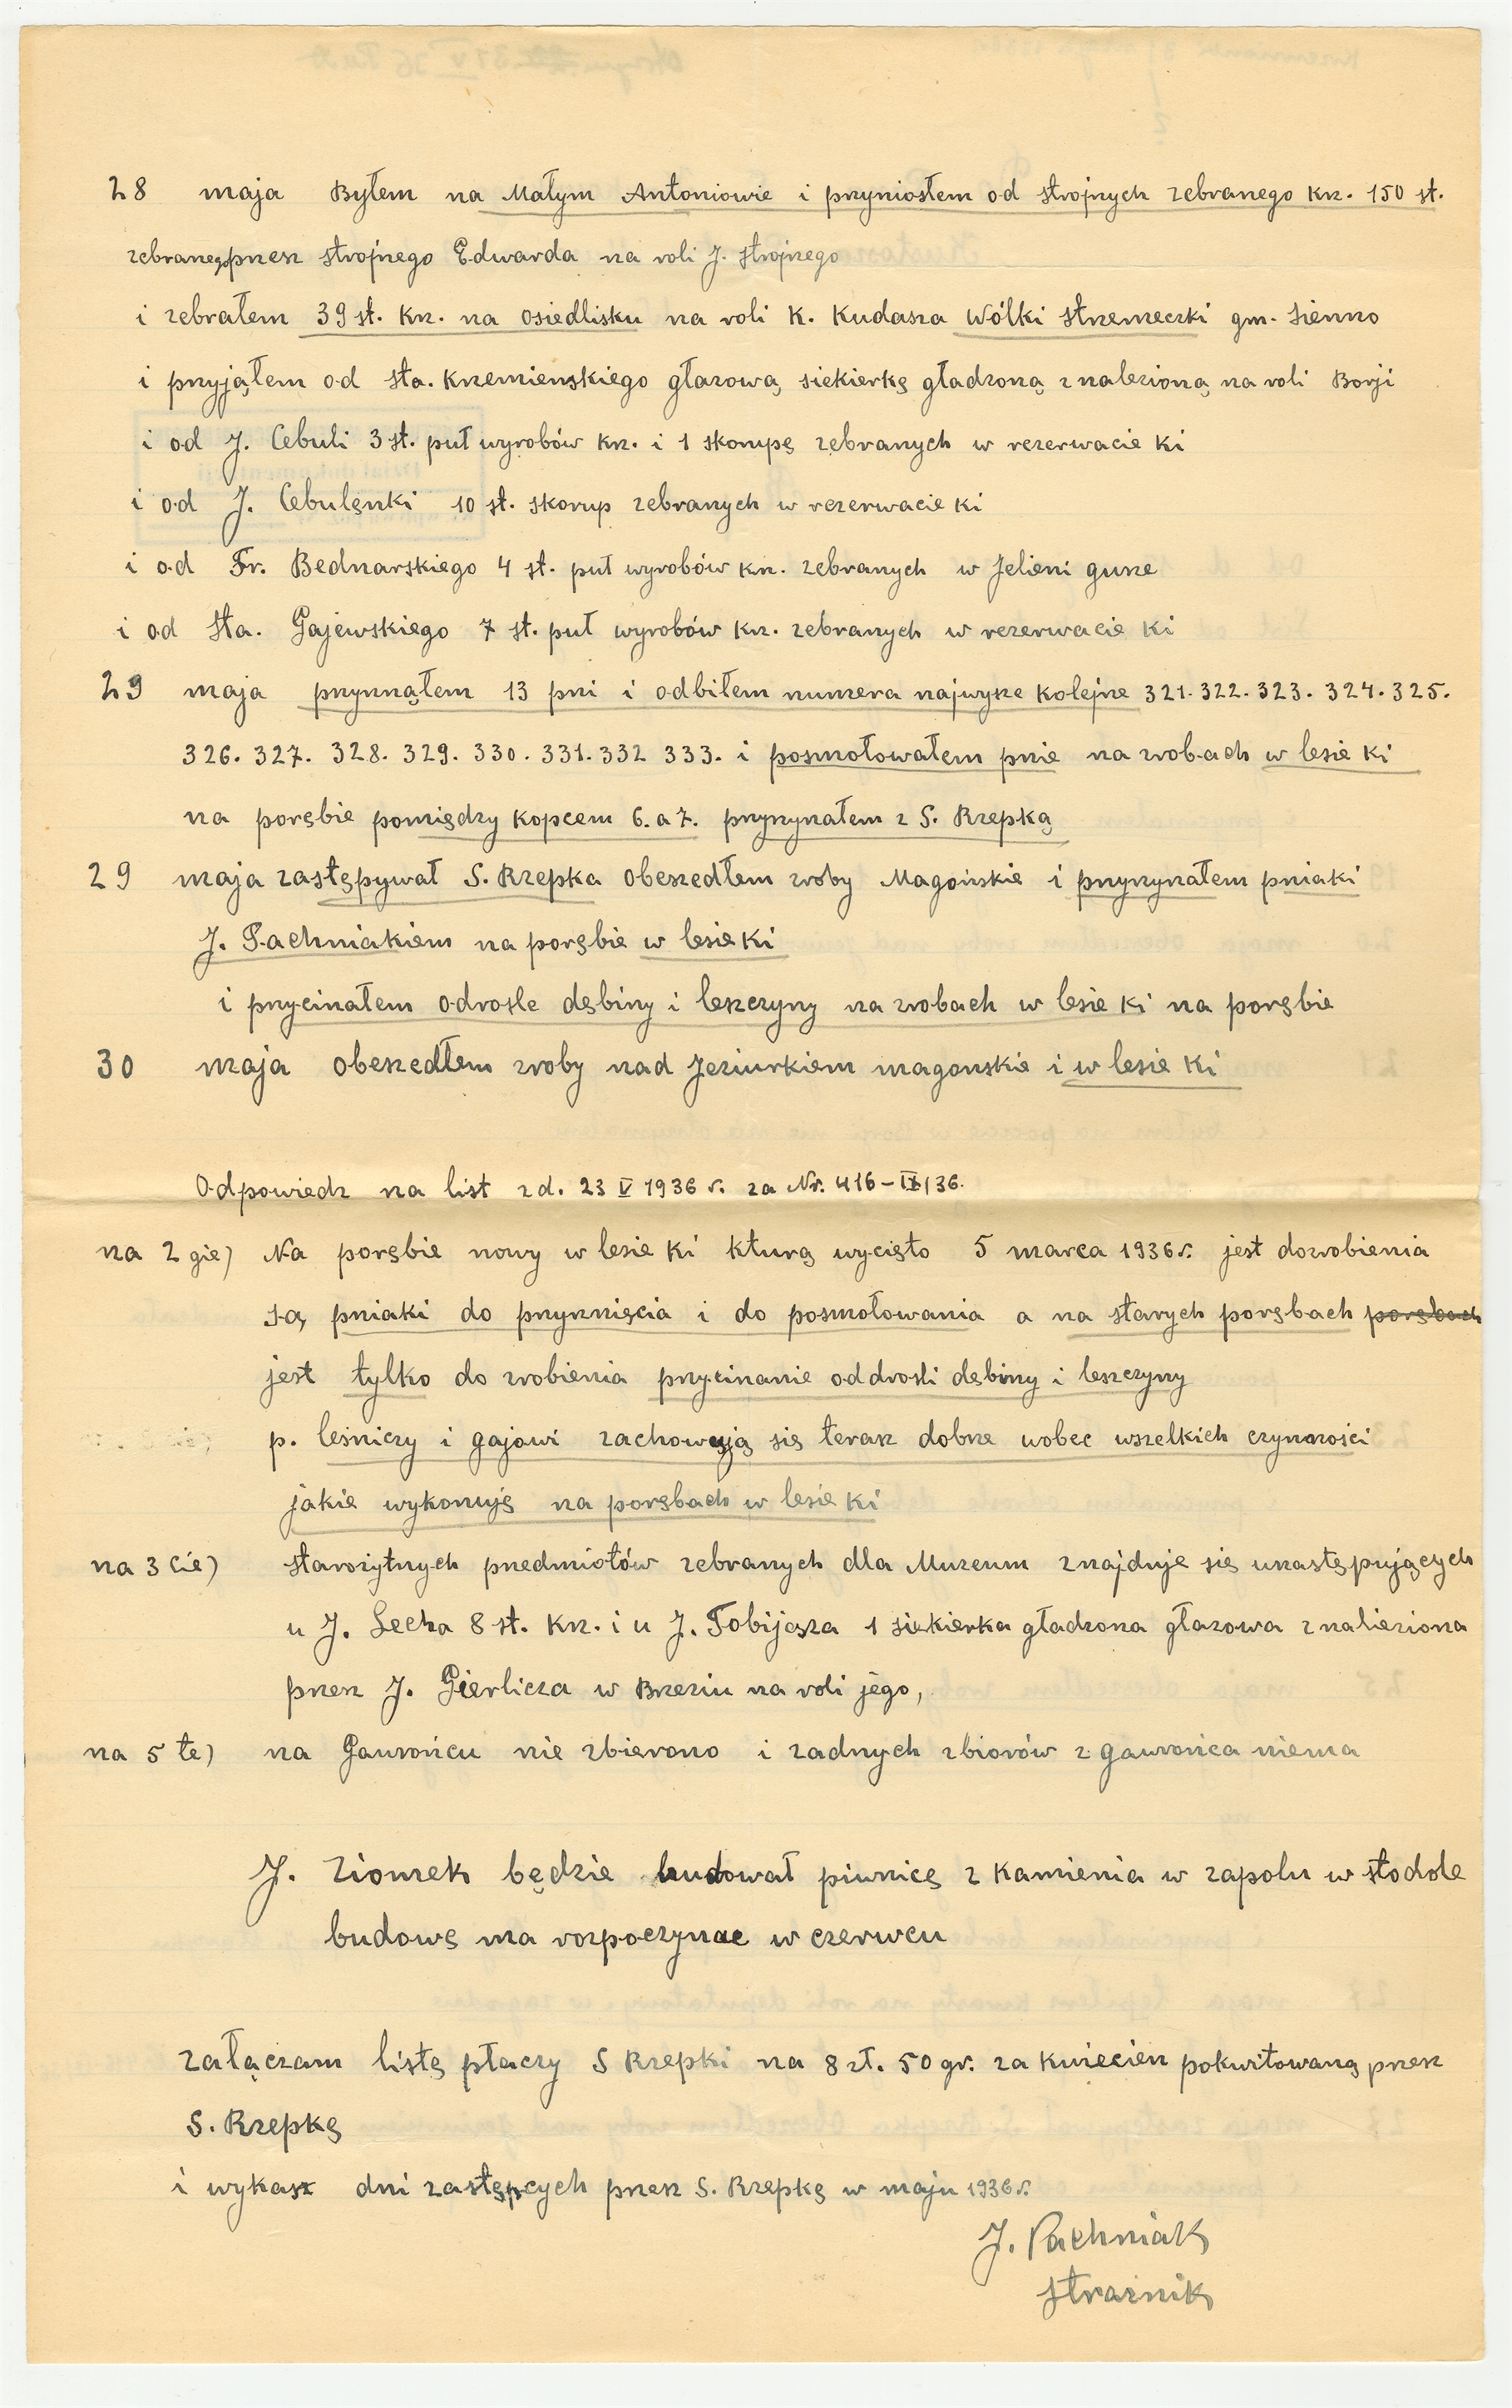 28 maja Byłem na Małym Antoniowie i pnyniosłem od strojnych zebranego kn. 150 st.
zebranego pnesz strojnego Edwarda na roli J. strojnego
i zebrałem 39 st. kn. na osiedlisku na roli K. Kudasza Wólki stnemeczki gm. Sienno
i pnyjąłem od sta. Knemienskiego głazową siekierkę gładzoną znalezioną na roli Borji
i od J. Cebuli 3 st. puł wyrobów kn. i 1 skorupę zebranych w rezerwacie ki
i od J. Cebulęnki 10 st. skorup zebranych w rezerwacie ki
i od Fr. Bednarskiego 4 st. puł wyrobów kn. zebranych w Jeleni gune
i od Sta. Gajewskiego 7 st. puł wyrobów kn. zebranych w rezerwacie ki
29 maja pnynnąłem 13 pni i odbiłem numera najwysze kolejne 321. 322. 323. 324. 325.
326. 327. 328. 329. 330. 331. 332 333. i posmołowałem pnie na zrobach w lesie ki
na porębie pomiędzy kopcem 6. a 7. pnynynałem z S. Rzepką
29 maja zastępywał S. Rzepka obeszedłem zroby Magońskie i pnynynałem pniaki
J. Pachniakiem na porębie w lesie ki
i pnycinałem odrosle dębiny i leszczyny na zrobach w lesie ki na porębie
30 maja obeszedłem zroby nad Jeziurkiem magonskie i w lesie ki
Odpowiedz na list z d. 23 V 1936 r. za Nr. 416-IX/36.
na 2 gie) Na porębie nowy w lesie ki kturą wycięto 5 marca 1936 r. jest dozrobienia
są pniaki do pnynnięcia i do posmołowania a na starych porębach porębach
jest tylko do zrobienia pnycinanie oddrośli dębiny i leszczyny
p. leśniczy i gajowi zachowują się terasz dobne wobec wszelkich czynności
jakie wykonuję na porębach w lesie ki
na 3 cie) starożytnych pnedmiotów zebranych dla Muzeum znajduje się unastępujących
u J. Lecha 8 st. kn. i u J. Tobijasza 1 siekierka gładzona głazowa znalieziona
pnesz J. Gierlicza w Bneziu na roli jego,
na 5 te) na Gawrońcu nie zbierono i zadnych zbiorów z gawrońca niema
J. Ziomek będzie budował piwnicę z kamienia w zapolu w stodole
budowę ma rozpoczynac w czerwcu
załączam listę płaczy S Rzepki na 8 zł. 50 gr. za kwiecien pokwitowaną pnesz
S. Rzepkę
i wykasz dni zastępcych pnesz S. Rzepkę w maju 1936 r.
J. Pachniak
strażnik